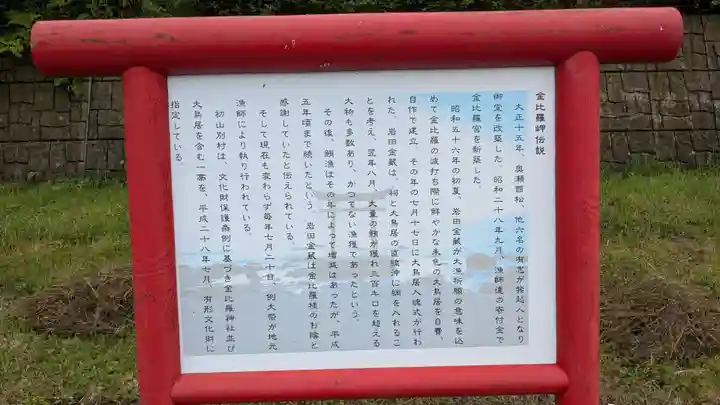 金比羅岬伝説
大正十五年、奥瀬酉松、他六名の有志が発起人となり
御堂を改築した。昭和二十八年九月、漁師達の寄付金で
金比羅宮を新築した。
昭和五十六年の初夏、岩田金蔵が大漁祈願の意味を込
めて金比羅の波打ち際に鮮やかな朱色の大鳥居を自費、
自作で建立、その年の七月十七日に大鳥居入魂式が行わ
れた。岩田金蔵は、祠と大鳥居の直線沖に網を入れるこ
とを考え、翌年八月、大量の鮪が獲れ三百キロを超える
大物も多数あり、かつてない漁獲であったという。
その後、鮪漁はその年によって増減はあったが、平成
五年頃まで続いたという。岩田金蔵は金比羅様のお陰と
感謝していたと伝えられている。
そして現在も変わらず毎年七月二十日、例大祭が地元
漁師により執り行われている。
初山別村は、文化財保護条例に基づき金比羅神社並び
大鳥居を含む一帯を、平成二十八年七月、有形文化財に
指定している。